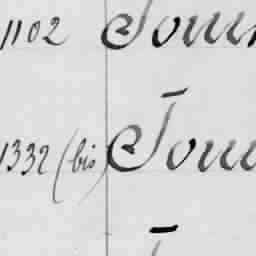 1102 Tour
1332 (bis) Tou